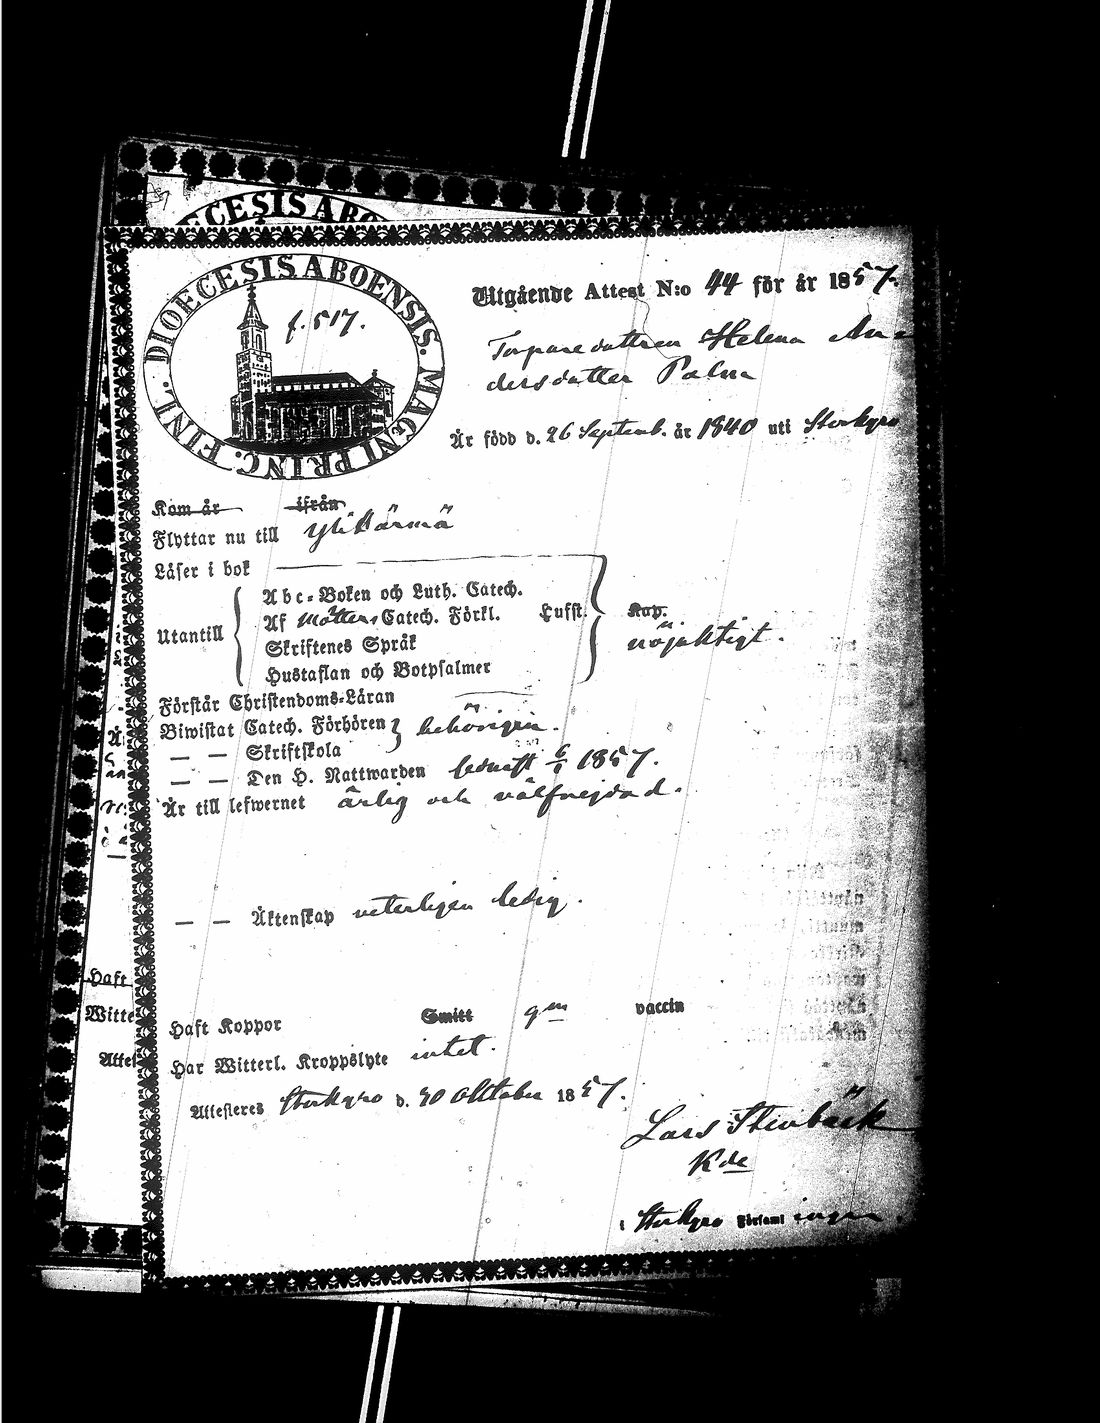 ECESIS ABO
DIOECESIS ABOENSIS. MAGNI PRINC. FINL.
f. 517.
Utgående Attest N:o 44 för år 1857.
Torparedottren Helena An=
dersdotter Palm
Är född d. 26 Septemb. år 1840 uti Storkyro
Kom år ifrån
Flyttar nu till Ylikärmä
Läser i bok
Abc-Boken och Luth. Catech.
Utantill Af Möllers Catech. Förkl. Hufst. Kap.
nöjaktigt.
Skriftenes Språk
Hustaflan och Botpsalmer
Förstår Christendoms-Läran
Biwistat Catech. Förhören behörigen.
— — Skriftskola
— — Den H. Nattwarden sednast 6/9 1857.
Är till lefwernet ärlig och välfrejdad.
— — Äktenskap veterligen ledig.
Haft Koppor Smitt gm vaccin
Har Witterl. Kroppslyte intet.
Attesteres Storkyro d. 30 Oktober 1857.
Lars Stenbäck
Kde
i Storkyro Församl
Haft
Witte
Attes